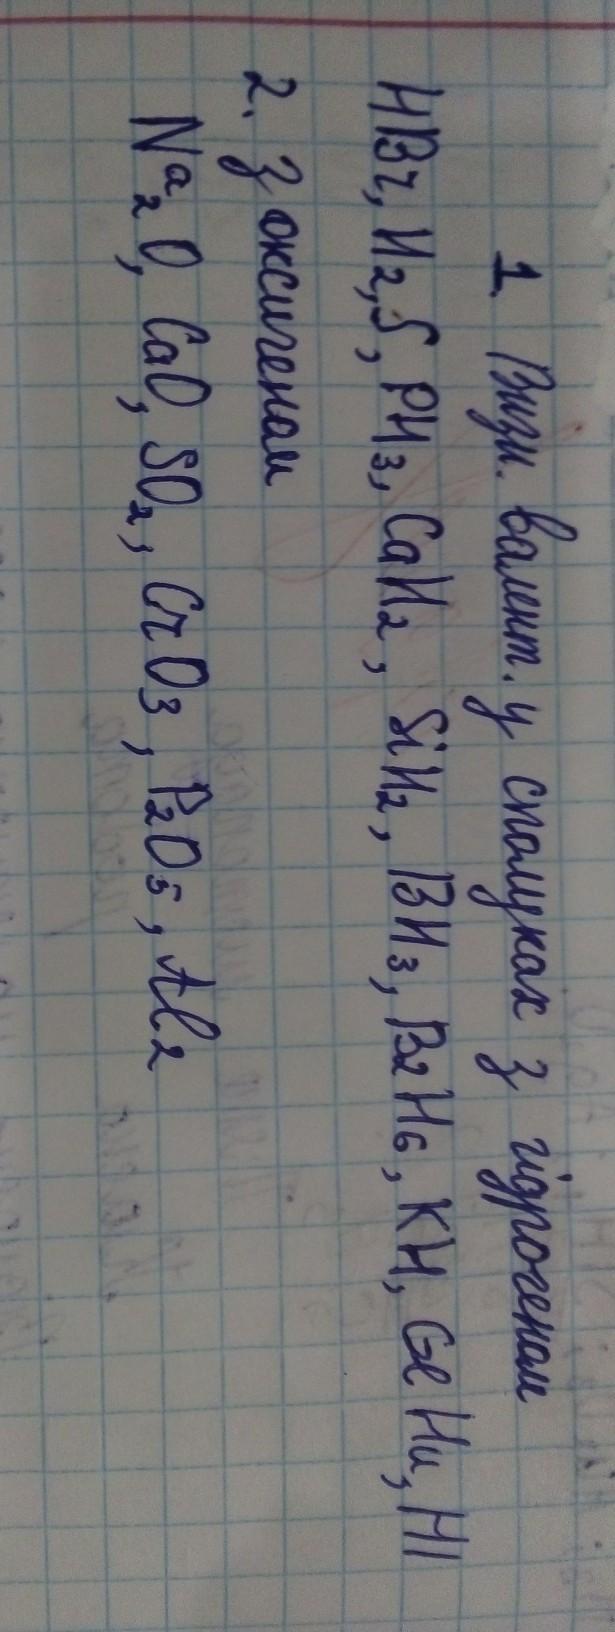 1. Визн. валент. у сполуках з гідрогеном
HBr, H₂,S, PH₃, CaH₂, SiH₂, BH₃, B₂H₆, KH, GeH₄, HI
2. З оксигеном
Na₂O, CaO, SO₂, CrO₃, P₂O₅, Al₂